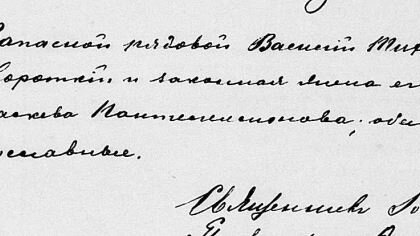 запасной рядовой Василий Тих
Короткий и законная жена ег
аскева Пантелеимонова; оба
ославные.
Священник